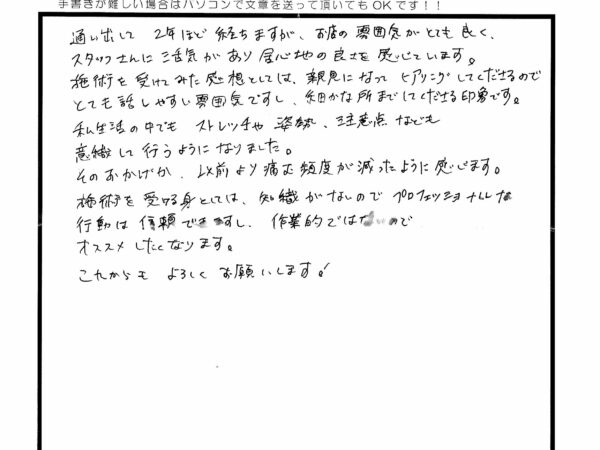 手書きが難しい場合はパソコンで文章を送って頂いてもOKです！！
通い出して 2年ほど 経ちますが、お店の 雰囲気がとても良く、
スタッフさんに 活気が あり 居心地の 良さを 感じています。
施術を 受けてみた 感想としては、親身になって ヒアリングしてくださるので
とても 話しやすい 雰囲気ですし、細かな 所までしてくださる印象です。
私生活の中でも ストレッチや 姿勢、注意点 なども
意識して 行うように なりました。
そのおかげか、以前より 痛む 頻度が 減ったように 感じます。
施術を 受ける身としては、知識がないので プロフェッショナルな
行動は 信頼できますし、作業的ではないので
オススメ したくなります。
これからも よろしく お願いします!